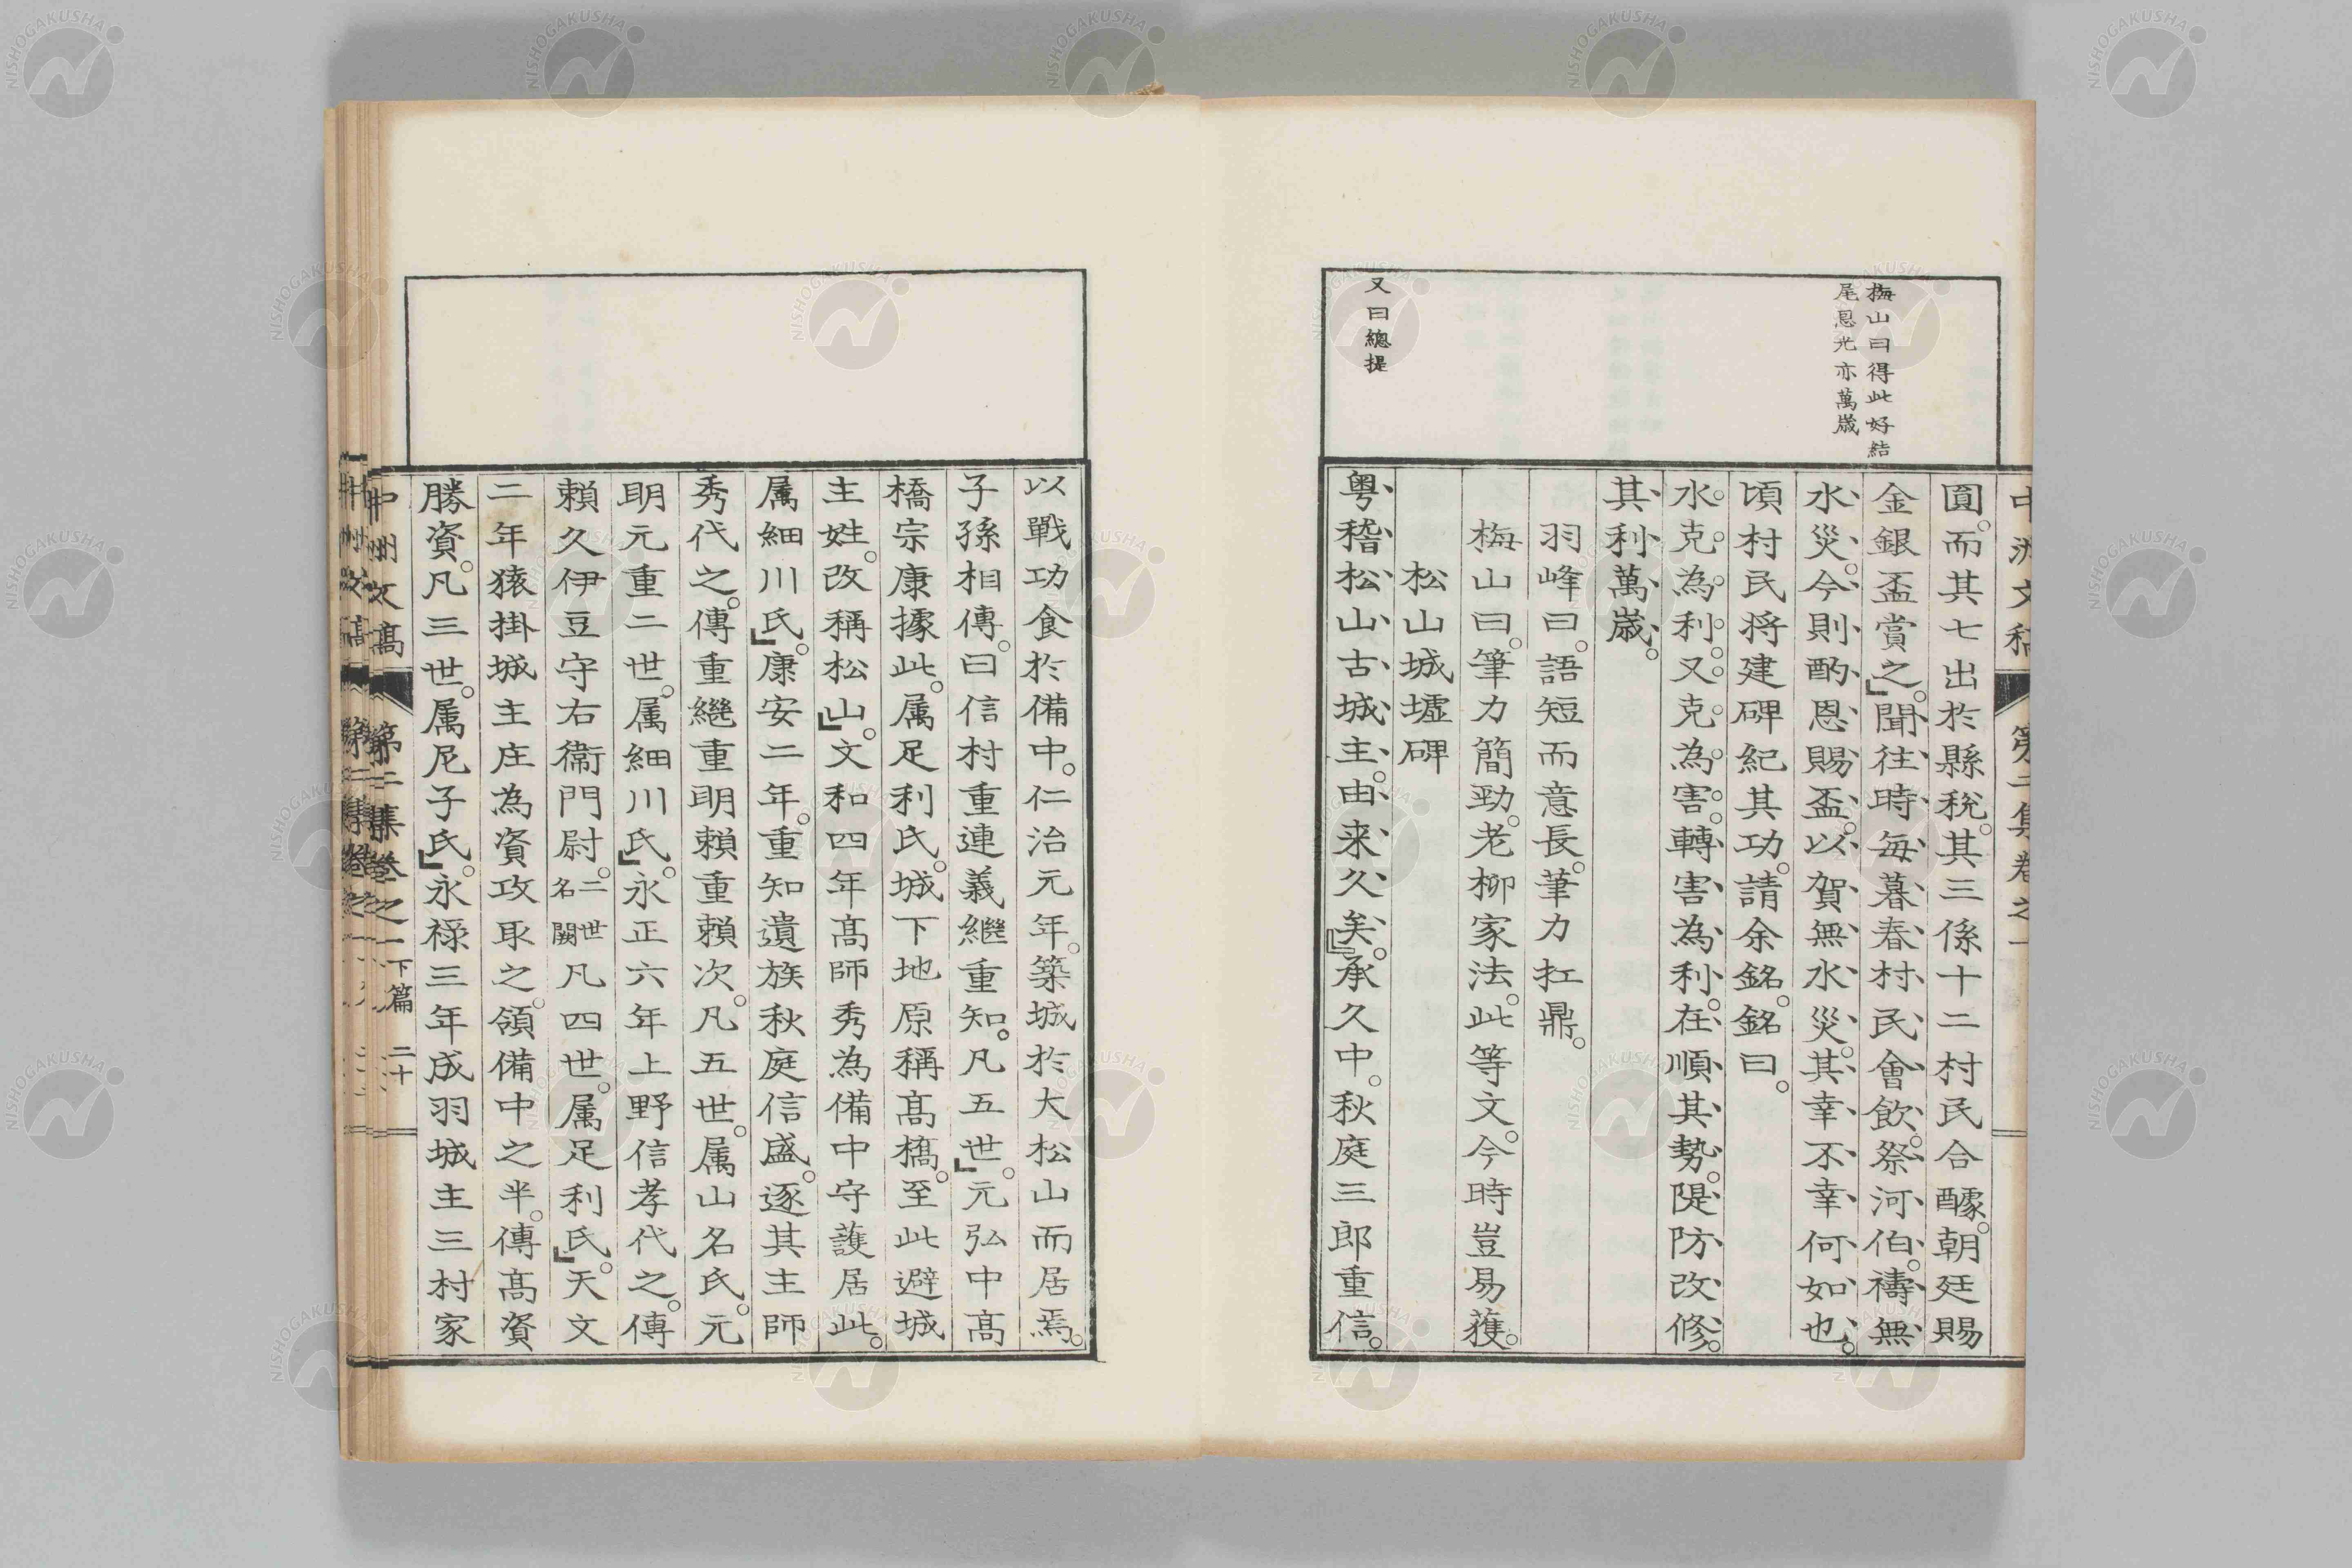 梅山曰得此好結
尾恩光亦萬歲
又曰總提
圓。而其七出於縣稅。其三係十二村民合醵。朝廷賜
金銀盃賞之。聞往時每暮春村民會飲。祭河伯。禱無
水災。今則酌恩賜盃。以賀無水災。其幸不幸何如也。
頃村民將建碑紀其功。請余銘。銘曰。
水。克為利。又克為害。轉害為利。在順其勢。隄防改修。
其利萬歲。
羽峰曰。語短而意長。筆力扛鼎。
梅山曰。筆力簡勁。老柳家法。此等文。今時豈易獲。
松山城墟碑
粤稽松山古城主。由来久矣。承久中。秋庭三郎重信。
以戰功食於備中。仁治元年。築城於大松山而居焉。
子孫相傳。曰信村重連義繼重知。凡五世。元弘中高
橋宗康據此。属足利氏。城下地原稱高橋。至此避城
主姓。改稱松山。文和四年高師秀為備中守護居此。
属細川氏。康安二年。重知遺族秋庭信盛。逐其主師
秀代之。傳重繼重明賴重賴次。凡五世。属山名氏。元
明元重二世。属細川氏。永正六年上野信孝代之。傳
賴久伊豆守右衞門尉。二世名闕凡四世。属足利氏。天文
二年猿掛城主庄為資攻取之。領備中之半。傳高資
勝資。凡三世。属尼子氏。永祿三年成羽城主三村家
中洲文稿 第二集卷之一
第二集卷之一下篇 二十